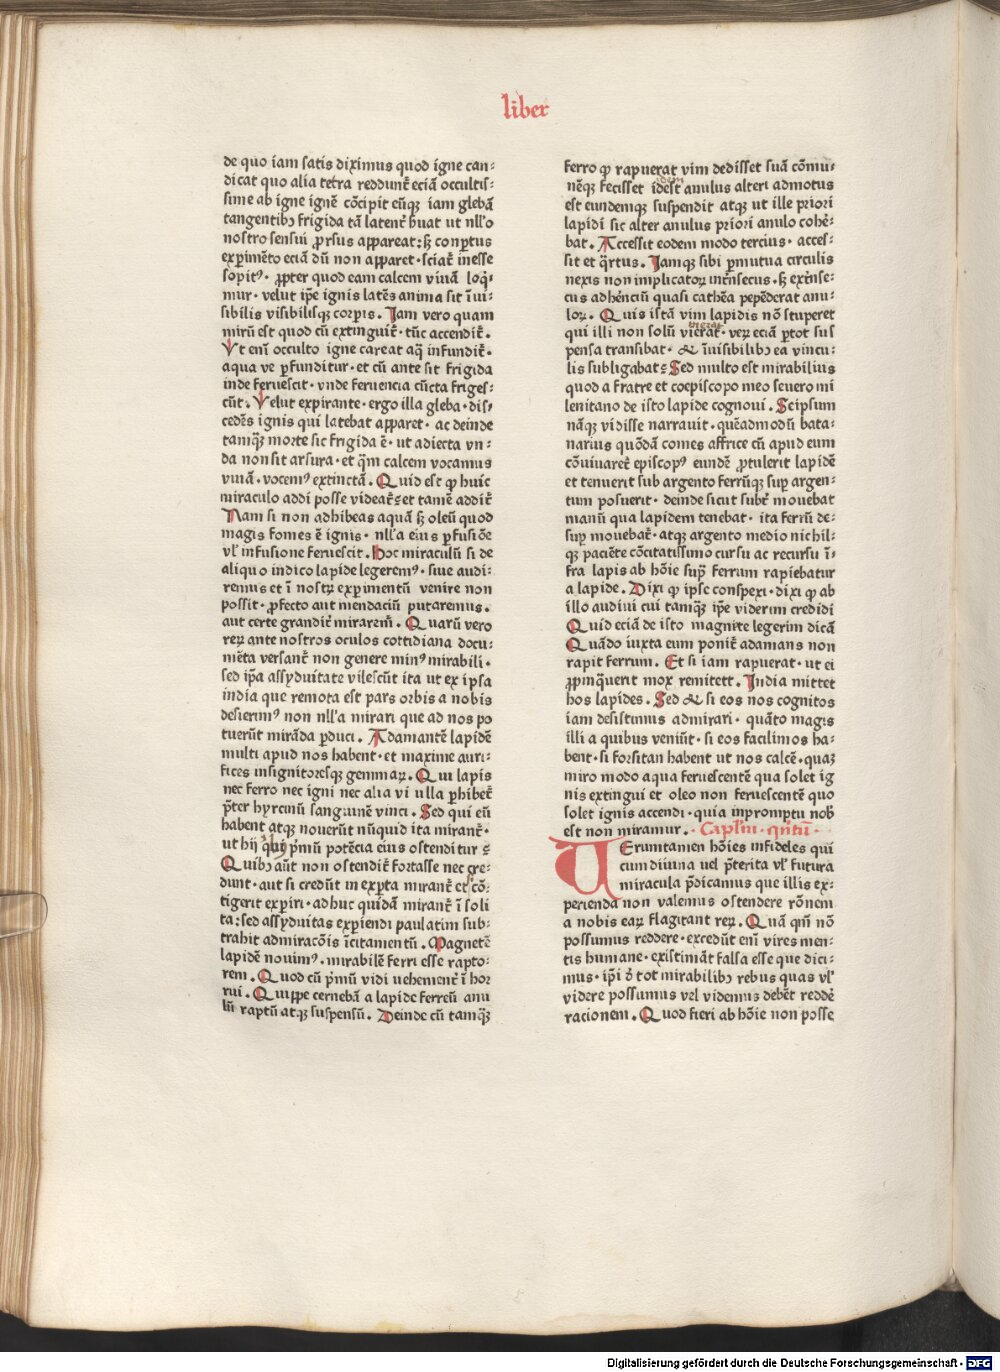 liber
de quo iam satis diximus quod igne can-
dicat quo alia tetra reddunt᷑ eciā occultis-
sime ab igne ignē cōcipit eūqꝫ iam glebā
tangentibꝫ frigida tā latent᷑ ẜuat ut nll'o
nostro sensui ꝓrsus appareat: sꝫ conꝑtus
exꝑimēto eciā dū non apparet · sciat᷑ inesse
sopitꝰ · ꝓpter quod eam calcem viuā loq̄-
mur · velut ip̄e ignis latēs anima sit īui-
sibilis visibilisqꝫ corꝑis. Iam vero quam
mirū est quod cū extinguit᷑ · tūc accendit᷑.
Vt enī occulto igne careat aq̄ infundit᷑.
aqua ve ꝑfunditur · et cū ante sit frigida
inde feruescit · vnde feruencia cūcta friges-
cūt. Velut expirante · ergo illa gleba · dis-
cedēs ignis qui latebat apparet · ac deinde
tamqꝫ̄ morte sic frigida ē · ut adiecta vn-
da non sit arsura · et q̄m calcem vocamus
viuā · vocemꝰ extinctā. Quid est ꝙ huic
miraculo addi posse videat᷑: et tamē addit᷑
Nam si non adhibeas aquā sꝫ oleū quod
magis fomes ē ignis · nll'a eius ꝑfusiōe
vl' infusione feruescit. Hoc miraculū si de
aliquo indico lapide legeremꝰ · siue audi-
remus et ī nostꝝ exꝑimentū venire non
possit · ꝓfecto aut mendaciū putaremus.
aut certe grandit᷑ mirarem᷑. Quarū vero
reꝝ ante nostros oculos cottidiana docu-
mēta versant᷑ non genere minꝰ mirabili ·
sed ip̄a assyduitate vilescūt ita ut ex ipsa
india que remota est pars orbis a nobis
desierimꝰ non nll'a mirari que ad nos po
tuerūt mirāda ꝑduci. Adamantē lapidē
multi apud nos habent · et maxime auri-
fices insignitoresqꝫ gemmaꝝ. Qui lapis
nec ferro nec igni nec alia vi ulla ꝑhibet᷑
p̄ter hyrcinū sanguinē vinci. Sed qui eū
habent atqꝫ nouerūt nūquid ita mirant᷑ ·
ut hij quibꝫ pͥmū potēcia eius ostenditur :
Quibꝫ aūt non ostendit᷑ fortasse nec cre-
dunt · aut si credūt inexꝑta mirant᷑ et si cō-
tigerit exꝑiri · adhuc quidā mirant᷑ ī soli
ta: sed assyduitas exꝑiendi paulatim sub-
trahit admiracōis īcitamentū. Magnetē
lapidē nouimꝰ · mirabilē ferri esse rapto-
rem. Quod cū pͥmū vidi uehement᷑ ī hor
rui. Quippe cernebā a lapide ferreū anu
lū raptū atqꝫ suspensū. Deinde cū tamqꝫ̄
ferro ꝙ rapuerat vim dedisset suā cōmu-
idem
nēqꝫ fecisset idest anulus alteri admotus
est eundemqꝫ suspendit atqꝫ ut ille priori
lapidi sic alter anulus priori anulo cohē-
bat. Accessit eodem modo tercius · acces-
sit et q̄rtus. Iamqꝫ sibi ꝑmutua circulis
nexis non implicatoꝝ int᷑nsecus · sꝫ ext᷑nse-
cus adhēnciū quasi cathēa pepēderat anu-
loꝝ. Quis istā vim lapidis nō stuperet
qui illi non solū vierat · veꝝ eciā ꝑtot sus
pensa transibat · & īuisibilibꝫ ea vincu-
lis subligabat: Sed multo est mirabilius
quod a fratre et coepiscopo meo seuero mi
lenitano de isto lapide cognoui. Seipsum
nāqꝫ vidisse narrauit · quēadmodū bata-
narius quōdā comes affrice cū apud eum
cōuiuaret᷑ episcopꝰ eundē ꝓtulerit lapidē
et tenuerit sub argento ferrūqꝫ suꝑ argen-
tum posuerit · deinde sicut subt᷑ mouebat
manū qua lapidem tenebat · ita ferrū de-
suꝑ mouebat᷑ · atqꝫ argento medio nichil-
qꝫ paciēte cōcitatissimo cursu ac recursu ī-
fra lapis ab hōie suꝑ ferrum rapiebatur
a lapide. Dixi ꝙ ipse conspexi · dixi ꝙ ab
illo audiui cui tamqꝫ̄ ip̄e viderim credidi
Quid eciā de isto magnete legerim dicā
Quādo iuxta eum ponit᷑ adamans non
rapit ferrum. Et si iam rapuerat · ut ei
ꝓpinq̄uerit mox remitett. India mittet
hos lapides. Sed & si eos nos cognitos
iam desistimus admirari · quāto magis
illi a quibus veniūt · si eos facilimos ha-
bent · si forsitan habent ut nos calcē · quaꝫ
miro modo aqua feruescentē qua solet ig
nis extingui et oleo non feruescentē quo
solet ignis accendi · quia inpromptu nobꝭ
est non miramur. · Capl'm · qͥntū ·
UErumtamen hōies infideles qui
cum diuina uel p̄terita vl' futura
miracula p̄dicamus que illis ex-
perienda non valemus ostendere rōnem
a nobis eaꝝ flagitant reꝝ. Quā qm̄ nō
possumus reddere · excedūt enī vires men-
tis humane · existimāt falsa esse que dici-
mus · ip̄i ḡ tot mirabilibꝫ rebus quas vl'
videre possumus vel videmus debēt reddē
racionem. Quod fieri ab hōie non posse
Digitalisierung gefördert durch die Deutsche Forschungsgemeinschaft - DFG